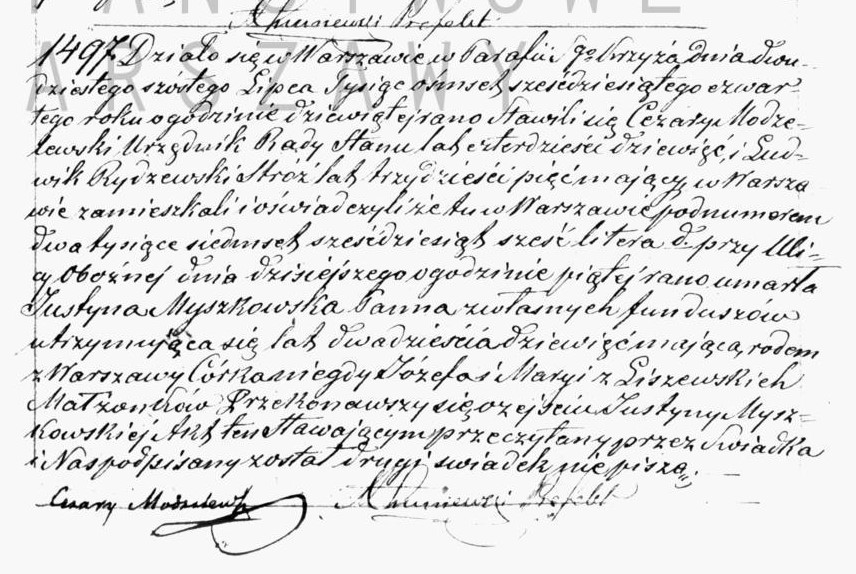 PAŃSTWOWE
WARSZAWY
Prefekt
1497. Działo się w Warszawie w Parafii Sgo Krzyża, dnia dwu-
dziestego szóstego Lipca Tysiąc osmset sześćdziesiątego czwar-
tego roku o godzinie dziewiątej rano Stawili się Cezary Modze-
lewski Urzędnik Rady Stanu lat czterdzieści dziewięć, i Lud-
wik Rydzewski Stróż lat trzydzieści pięć mający, w Warsza
wie zamieszkali i oświadczyli że tu w Warszawie pod numerem
dwa tysiące siedmset sześćdziesiąt sześć litera d. przy Uli-
cy Oboźnej dnia dzisiejszego o godzinie piątej rano umarła
Justyna Myszkowska Panna z własnych funduszów
utrzymująca się lat dwadzieścia dziewięć mająca, rodem
z Warszawy Córka niegdy Józefa i Maryi z Liszewskich
Małżonków Przekonawszy się o zejściu Justyny Mysz-
kowskiej Akt ten Stawającym przeczytany przez Świadka
i Nas podpisany został drugi świadek nie pisze.
Cezary Modzelewski Prefekt